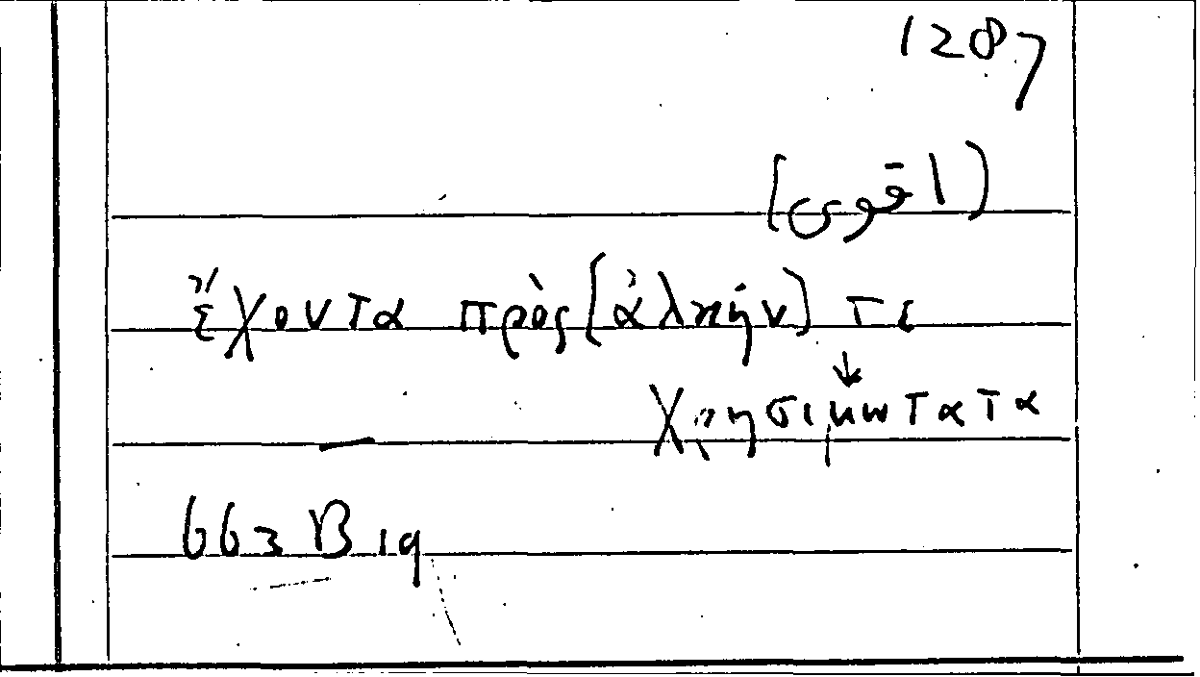 1287
ἔχοντα πρὸς [ἀλκήν] τε
↓
χρησιμωτατα
663 B 19